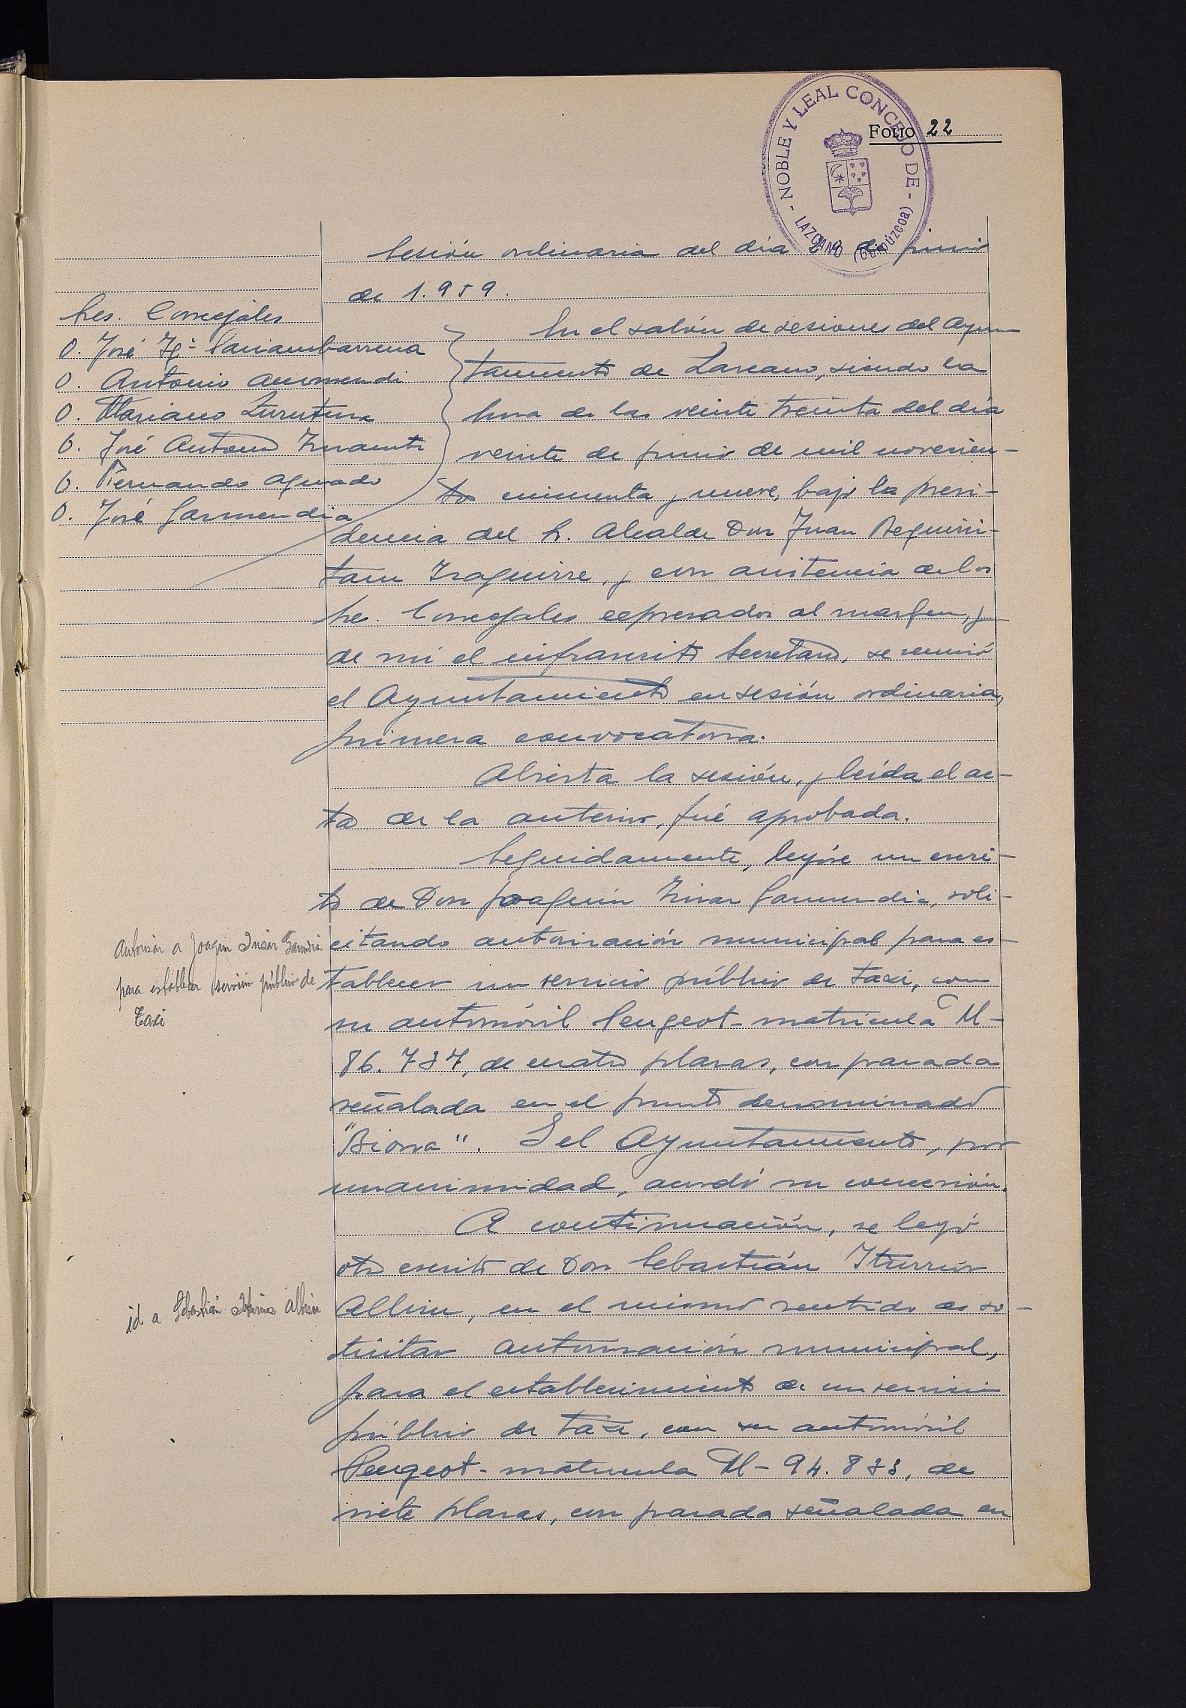 NOBLE Y LEAL CONCEJO DE
LAZCANO (GUIPÚZCOA)
Folio 22
Sesión ordinaria del día 20 de junio
de 1.959.
Sres. Concejales
D. José Igº Sarasambarrena
D. Antonio Aurmendi
D. Mariano Zurutuza
D. José Antonio
D. Fernando Aguado
D. José Garmendia
En el salón de sesiones del Ayun
tamiento de Lazcano, siendo la
hora de las veinte treinta del día
veinte de junio de mil novecien-
tos cincuenta y nueve, bajo la presi-
dencia del Sr. Alcalde Don Juan Beguiris-
tain Izaguirre, y con asistencia de los
Sres. Concejales expresados al margen, y
de mí el infrascrito Secretario, se reunió
el Ayuntamiento en sesión ordinaria,
primera convocatoria.
Abierta la sesión, y leída el ac-
ta de la anterior, fué aprobada.
Seguidamente, leyóse un escri-
to de Don Joaquín Insar Garmendia, soli-
citando autorización municipal para es-
tablecer un servicio público de taxi, con
su automóvil Peugeot - matrícula M-
86.737, de cuatro plazas, con parada
señalada en el punto denominado
"Biona". Y el Ayuntamiento, por
unanimidad, acordó su concesión.
Autorizar a Joaquin Insar Garmendia
para establecer servicio público de
Taxi
A continuación, se leyó
otro escrito de Don Sebastián Iturrioz
Albisu, en el mismo sentido de so-
licitar autorización municipal,
para el establecimiento de un servicio
público de taxi, con su automóvil
Peugeot - matrícula M- 94.833, de
siete plazas, con parada señalada en
id a Sebastián Iturrioz Albisu